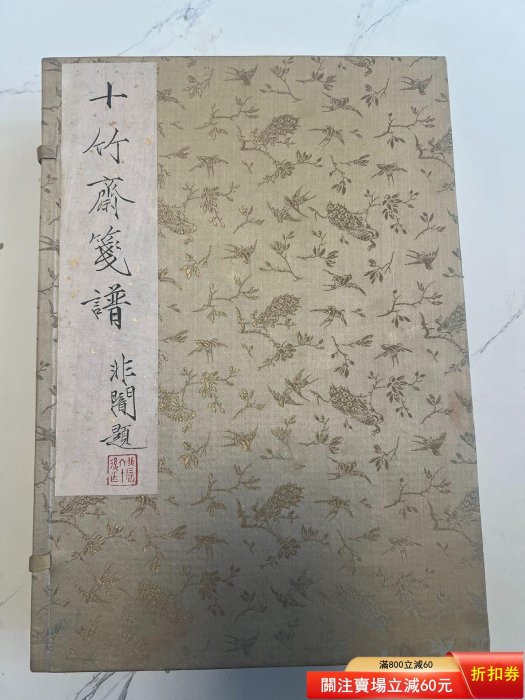 十竹齋箋譜
非闇題
滿800立減60
關注賣場立減60元
折扣券